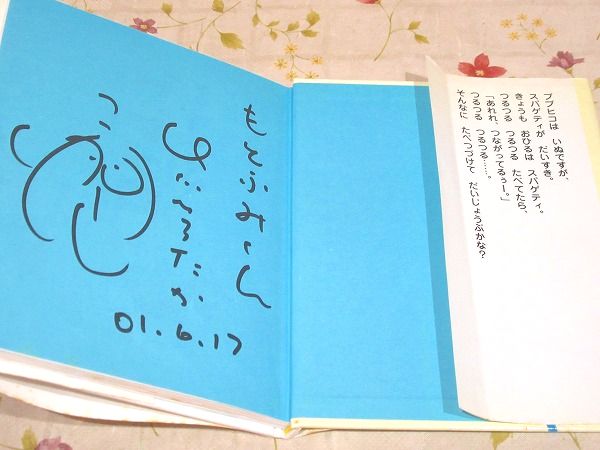 ププヒコは いぬですが、
スパゲティが だいすき。
きょうも おひるは スパゲティ。
つるつる つるつる たべてたら、
「あれれ、つながってるぅー。」
つるつる つるつる……。
そんなに たべつづけて だいじょうぶかな？
もとふみくん
01.6.17